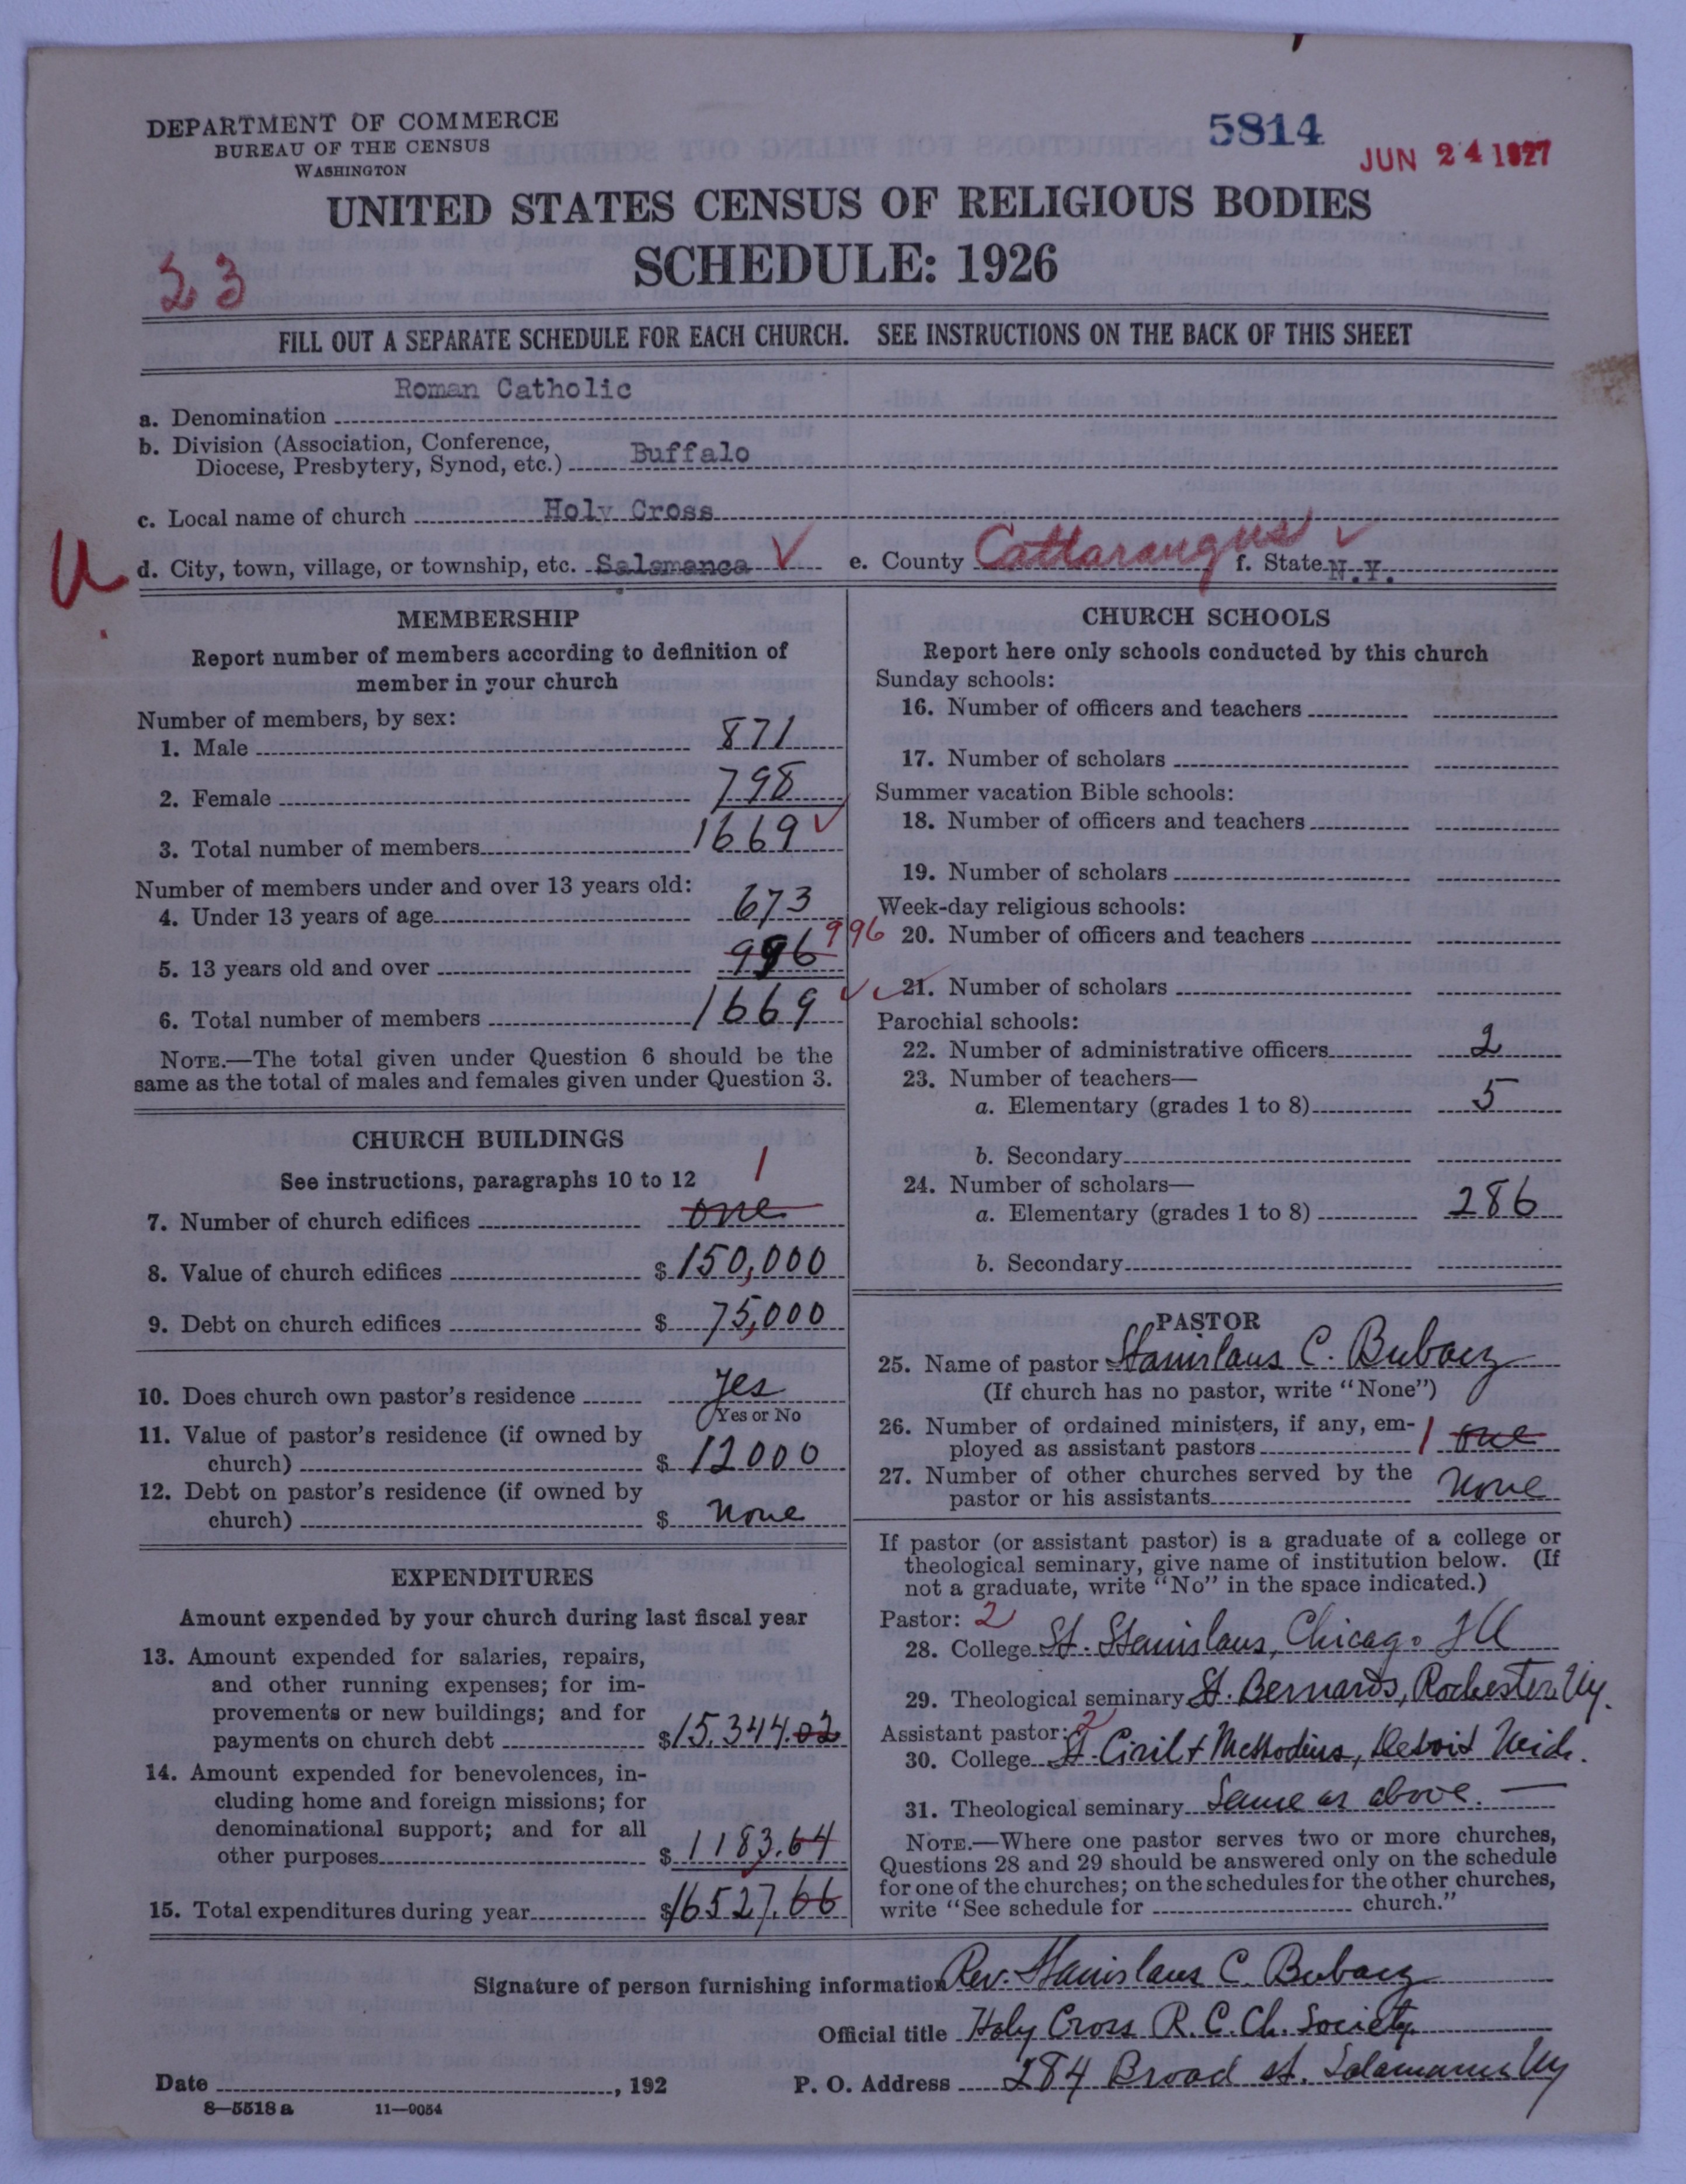 DEPARTMENT OF COMMERCE
BUREAU OF THE CENSUS
WASHINGTON
5814
JUN 24 1927
UNITED STATES CENSUS OF RELIGIOUS BODIES
SCHEDULE: 1926
23
FILL OUT A SEPARATE SCHEDULE FOR EACH CHURCH. SEE INSTRUCTIONS ON THE BACK OF THIS SHEET
a. Denomination Roman Catholic
b. Division (Association, Conference,
Diocese, Presbytery, Synod, etc.) Buffalo
c. Local name of church Holy Cross
U. d. City, town, village, or township, etc. Salamanca ✓ e. County Cattaraugus ✓ f. State N.Y.
MEMBERSHIP
Report number of members according to definition of
member in your church
Number of members, by sex:
1. Male 871
2. Female 798
3. Total number of members 1669 ✓
Number of members under and over 13 years old:
4. Under 13 years of age 673
5. 13 years old and over 996 996
6. Total number of members 1669 ✓ ✓
NOTE.—The total given under Question 6 should be the
same as the total of males and females given under Question 3.
CHURCH BUILDINGS
See instructions, paragraphs 10 to 12
7. Number of church edifices one 1
8. Value of church edifices $ 150,000
9. Debt on church edifices $ 75,000
10. Does church own pastor's residence yes
Yes or No
11. Value of pastor's residence (if owned by
church) $ 12000
12. Debt on pastor's residence (if owned by
church) $ none
EXPENDITURES
Amount expended by your church during last fiscal year
13. Amount expended for salaries, repairs,
and other running expenses; for im-
provements or new buildings; and for
payments on church debt $ 15,344.02
14. Amount expended for benevolences, in-
cluding home and foreign missions; for
denominational support; and for all
other purposes $ 1183.64
15. Total expenditures during year $ 16527.66
CHURCH SCHOOLS
Report here only schools conducted by this church
Sunday schools:
16. Number of officers and teachers
17. Number of scholars
Summer vacation Bible schools:
18. Number of officers and teachers
19. Number of scholars
Week-day religious schools:
20. Number of officers and teachers
21. Number of scholars
Parochial schools:
22. Number of administrative officers 2
23. Number of teachers—
a. Elementary (grades 1 to 8) 5
b. Secondary
24. Number of scholars—
a. Elementary (grades 1 to 8) 286
b. Secondary
PASTOR
25. Name of pastor Stanislaus C. Bubacz
(If church has no pastor, write "None")
26. Number of ordained ministers, if any, em-
ployed as assistant pastors 1 one
27. Number of other churches served by the
pastor or his assistants none
If pastor (or assistant pastor) is a graduate of a college or
theological seminary, give name of institution below. (If
not a graduate, write "No" in the space indicated.)
Pastor: 2
28. College St. Stanislaus, Chicago Ill
29. Theological seminary St. Bernards, Rochester Ny.
Assistant pastor: 2
30. College St. Ciril + Methodius, Detroit Mich.
31. Theological seminary Same as above.
NOTE.—Where one pastor serves two or more churches,
Questions 28 and 29 should be answered only on the schedule
for one of the churches; on the schedules for the other churches,
write "See schedule for church."
Signature of person furnishing information Rev. Stanislaus C. Bubacz
Official title Holy Cross R. C. Ch. Society
Date , 192 P. O. Address 284 Broad st. Salamanca Ny
8—5518 a 11—9054